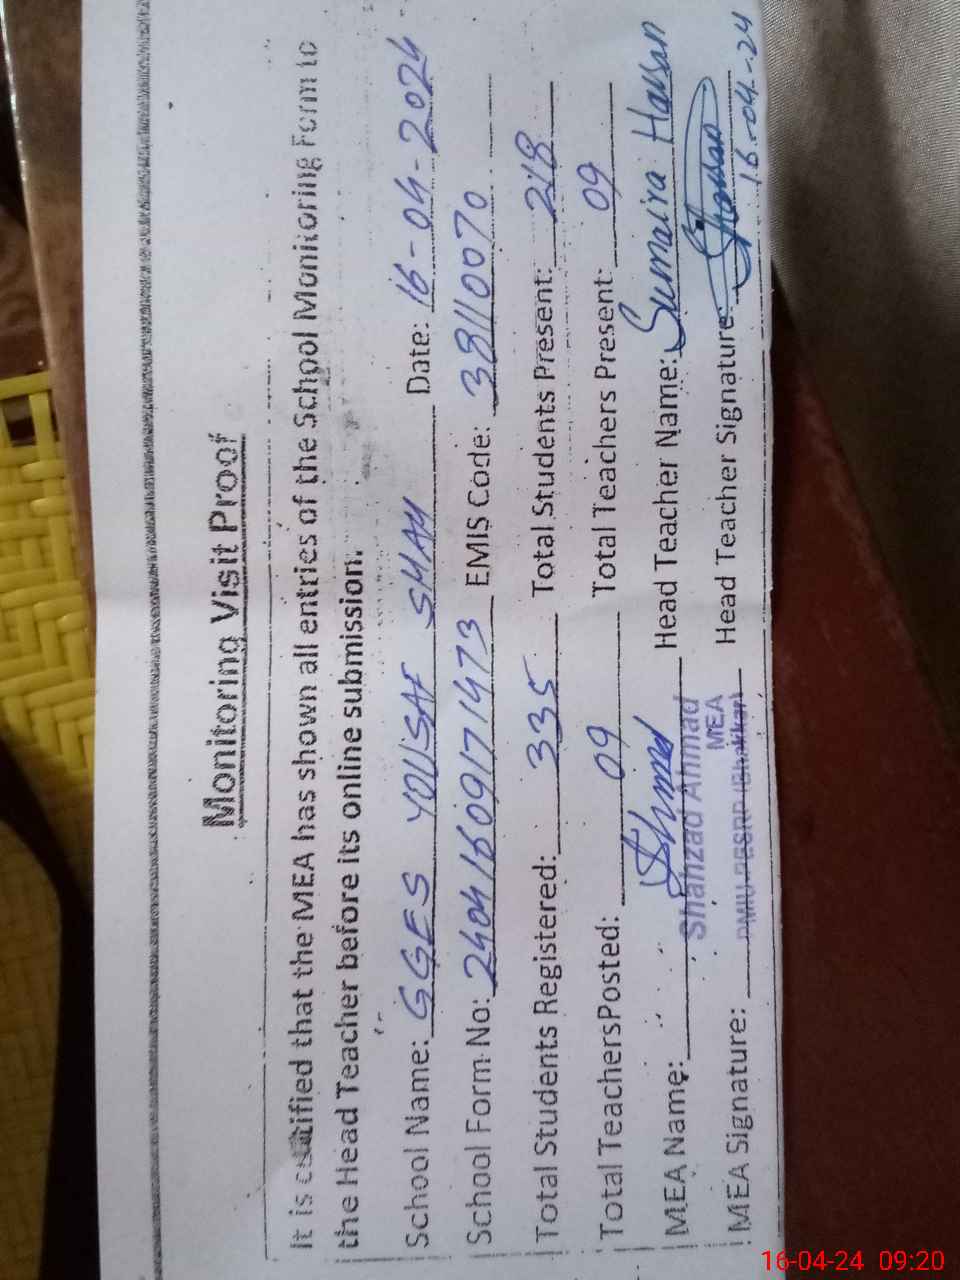 Monitoring Visit Proof
It is certified that the MEA has shown all entries of the School Monitoring Form to
the Head Teacher before its online submission.
School Name: GGES YOUSAF SHAH Date: 16-04-2024
School Form No: 24041609171473 EMIS Code: 38110070
Total Students Registered: 335 Total Students Present: 218
Total TeachersPosted: 09 Total Teachers Present: 09
MEA Name: Head Teacher Name: Sumaira Hassan
Shahzad Ahmad
MEA
MEA Signature: Head Teacher Signature:
16-04-24
16-04-24 09:20